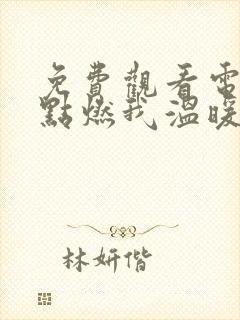 免費觀看電
點燃我溫暖
林妍偕